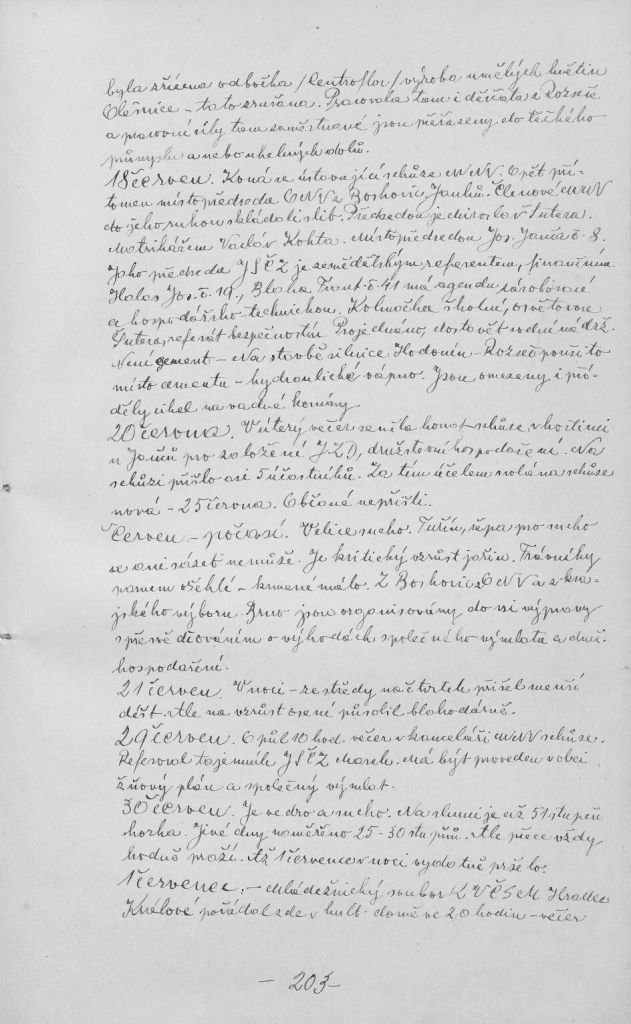 byla zřízena odbočka /Centroflor/ výroba umělých květin
Olešnice - tato zrušena. Pracovala tam i děvčata z Rozseče
a pracovní síly tam zaměstnané jsou přeřazeny do těžkého
průmyslu a nebo uhelných dolů.
18 červen. Koná se ústavující schůze MNV. Opět pří-
tomen místopředseda ONV z Boskovic, Janků. Členové MNV
do jeho rukou skládali slib. Předsedou je Miroslav Šutera.
Matrikářem Václav Kohta. Místopředsedou Jos. Janča č. 8.
Jako předseda JSČZ je zemědělským referentem, finančním
Halas Jos. č. 19., Blaha Frant. č. 41 má agendu zásobovací
a hospodářsko-technickou. Kolmačka školní, osvětovou
Šutera, referát bezpečnostní. Projednáno, dostavět vodní nádrž.
Není cement - Na stavbě silnice Hodonín - Rozseč použito
místo cementu - hydraulické vápno. Jsou omezeny i pří-
děly cihel na vadné komíny
20 června. V úterý večer se měla konat schůze v hostinci
u Jančů pro založení JZD, družstevní hospodaření. Na
schůzi přišlo asi 5 účastníků. Za tím účelem svolána schůze
nová - 25 června. Občané nepřišli.
Červen - počasí. Velice sucho. Tuřín, řepa pro sucho
se ani sázet nemůže. Je kritický vzrůst jařin. Trávníky
pramen oschlé - krmené málo. Z Boskovic ONV a z kra-
jského výboru Brno jsou organisovány do vsí výpravy
s přesvědčováním o výhodách společného výmlatu a druž.
hospodaření.
21 červen. V noci - ze středy na čtvrtek přišel menší
déšť. Ale na vzrůst osení působil blahodárně.
29 červen. O půl 10 hod. večer v kanceláři MNV schůze.
Referoval tajemník JSČZ Marek. Má být proveden v obci
žňový plán a společný výmlat.
30 červen. Je vedro a sucho. Na slunci je až 51 stupeň
horka. Jiné dny naměřeno 25-30 stupňů. Ale přece vždy
hodně praží. Až 1 července v noci vydatně pršelo.
1 červenec. - Mládežnický soubor KVČSM Hradec
Králové pořádal zde v kult. domě ve 20 hodin - večer
- 203 -